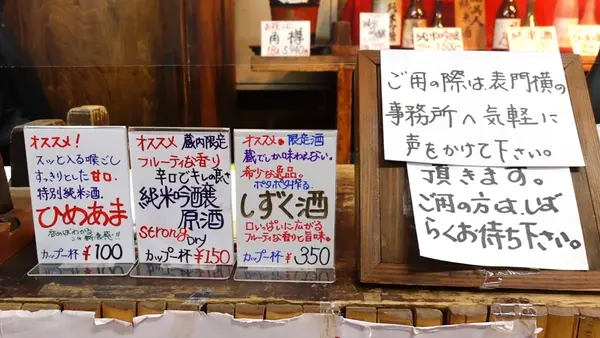 角樽
1.8ℓ 5,940円
オススメ!
スッと入る喉ごし
すっきりとした甘口
特別純米酒
ひめあま
カップ一杯 ¥100
オススメ 蔵内限定
フルーティな香り
辛口でキレの良さ
純米吟醸
原酒
strong DRY
カップ一杯 ¥150
オススメ。限定酒
蔵でしか味わえない。
希少な逸品。
ポタポタ搾る
しずく酒
口いっぱいに広がる
フルーティな香りと旨味。
カップ一杯 ¥350
ご用の際は、表門横の
事務所へ気軽に
声をかけて下さい。
頂きます。
ご用の方は、しば
らくお待ち下さい。